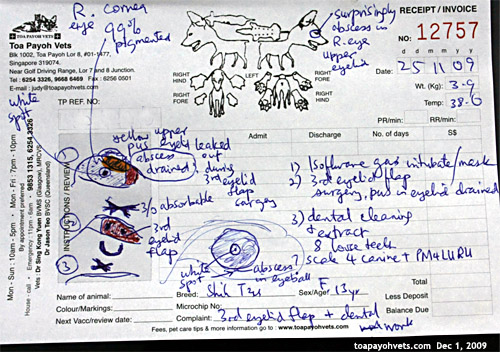 R. cornea
eye 99%
pigmented
surprisingly
abscess in
R. eye
upper
eyelid
TOA PAYOH VETS
Toa Payoh Vets
Blk 1002, Toa Payoh Lor 8, #01-1477,
Singapore 319074.
Near Golf Driving Range, Lor 7 and 8 Junction.
Tel : 6254 3326, 9668 6469 Fax : 6256 0501
E-mail : judy@toapayohvets.com
RECEIPT / INVOICE
NO: 12757
Date: 25 11 09
Wt. (Kg): 3.9
Temp: 38.6
PR/min: RR/min:
RIGHT HIND
LEFT HIND
RIGHT FORE
RIGHT HIND
RIGHT FORE
white
spot
TP REF. NO:
Admit Discharge No. of days S$
INSTRUCTIONS / REVIEW
yellow upper
pus eyelid leaked
abscess out
drained during
3rd eyelid
flap
surgery
1) Isoflurane gas intubate/mask
2) 3rd eyelid flap
surgery, pus - eyelid drained
3) dental cleaning
+ extract
8 loose teeth
scale 4 canine + PM4 LURU
1
2
3
3/0 absorbable
3rd
eyelid
flap
white
spot
abscess
in eyeball
Mon - Sun : 10am - 5pm • Mon - Fri : 7pm - 10pm
By appointment preferred
House - call • Emergency 11pm - 6am • 9853 1315, 6254 3326
Vets : Dr Sing Kong Yuan BVMS (Glasgow), MRCVS
Dr Jason Teo BVSC (Queensland)
Name of animal:
Breed: Shih Tzu Sex/Age: F 13yr
Colour/Markings: Microchip No:
Next Vacc/review date: Complaint: 3rd eyelid flap + dental
work
Total
Less Deposit
Balance
Balance Due
Fees, pet care tips & more information go to : www.toapayohvets.com
toapayohvets.com Dec 1, 2009